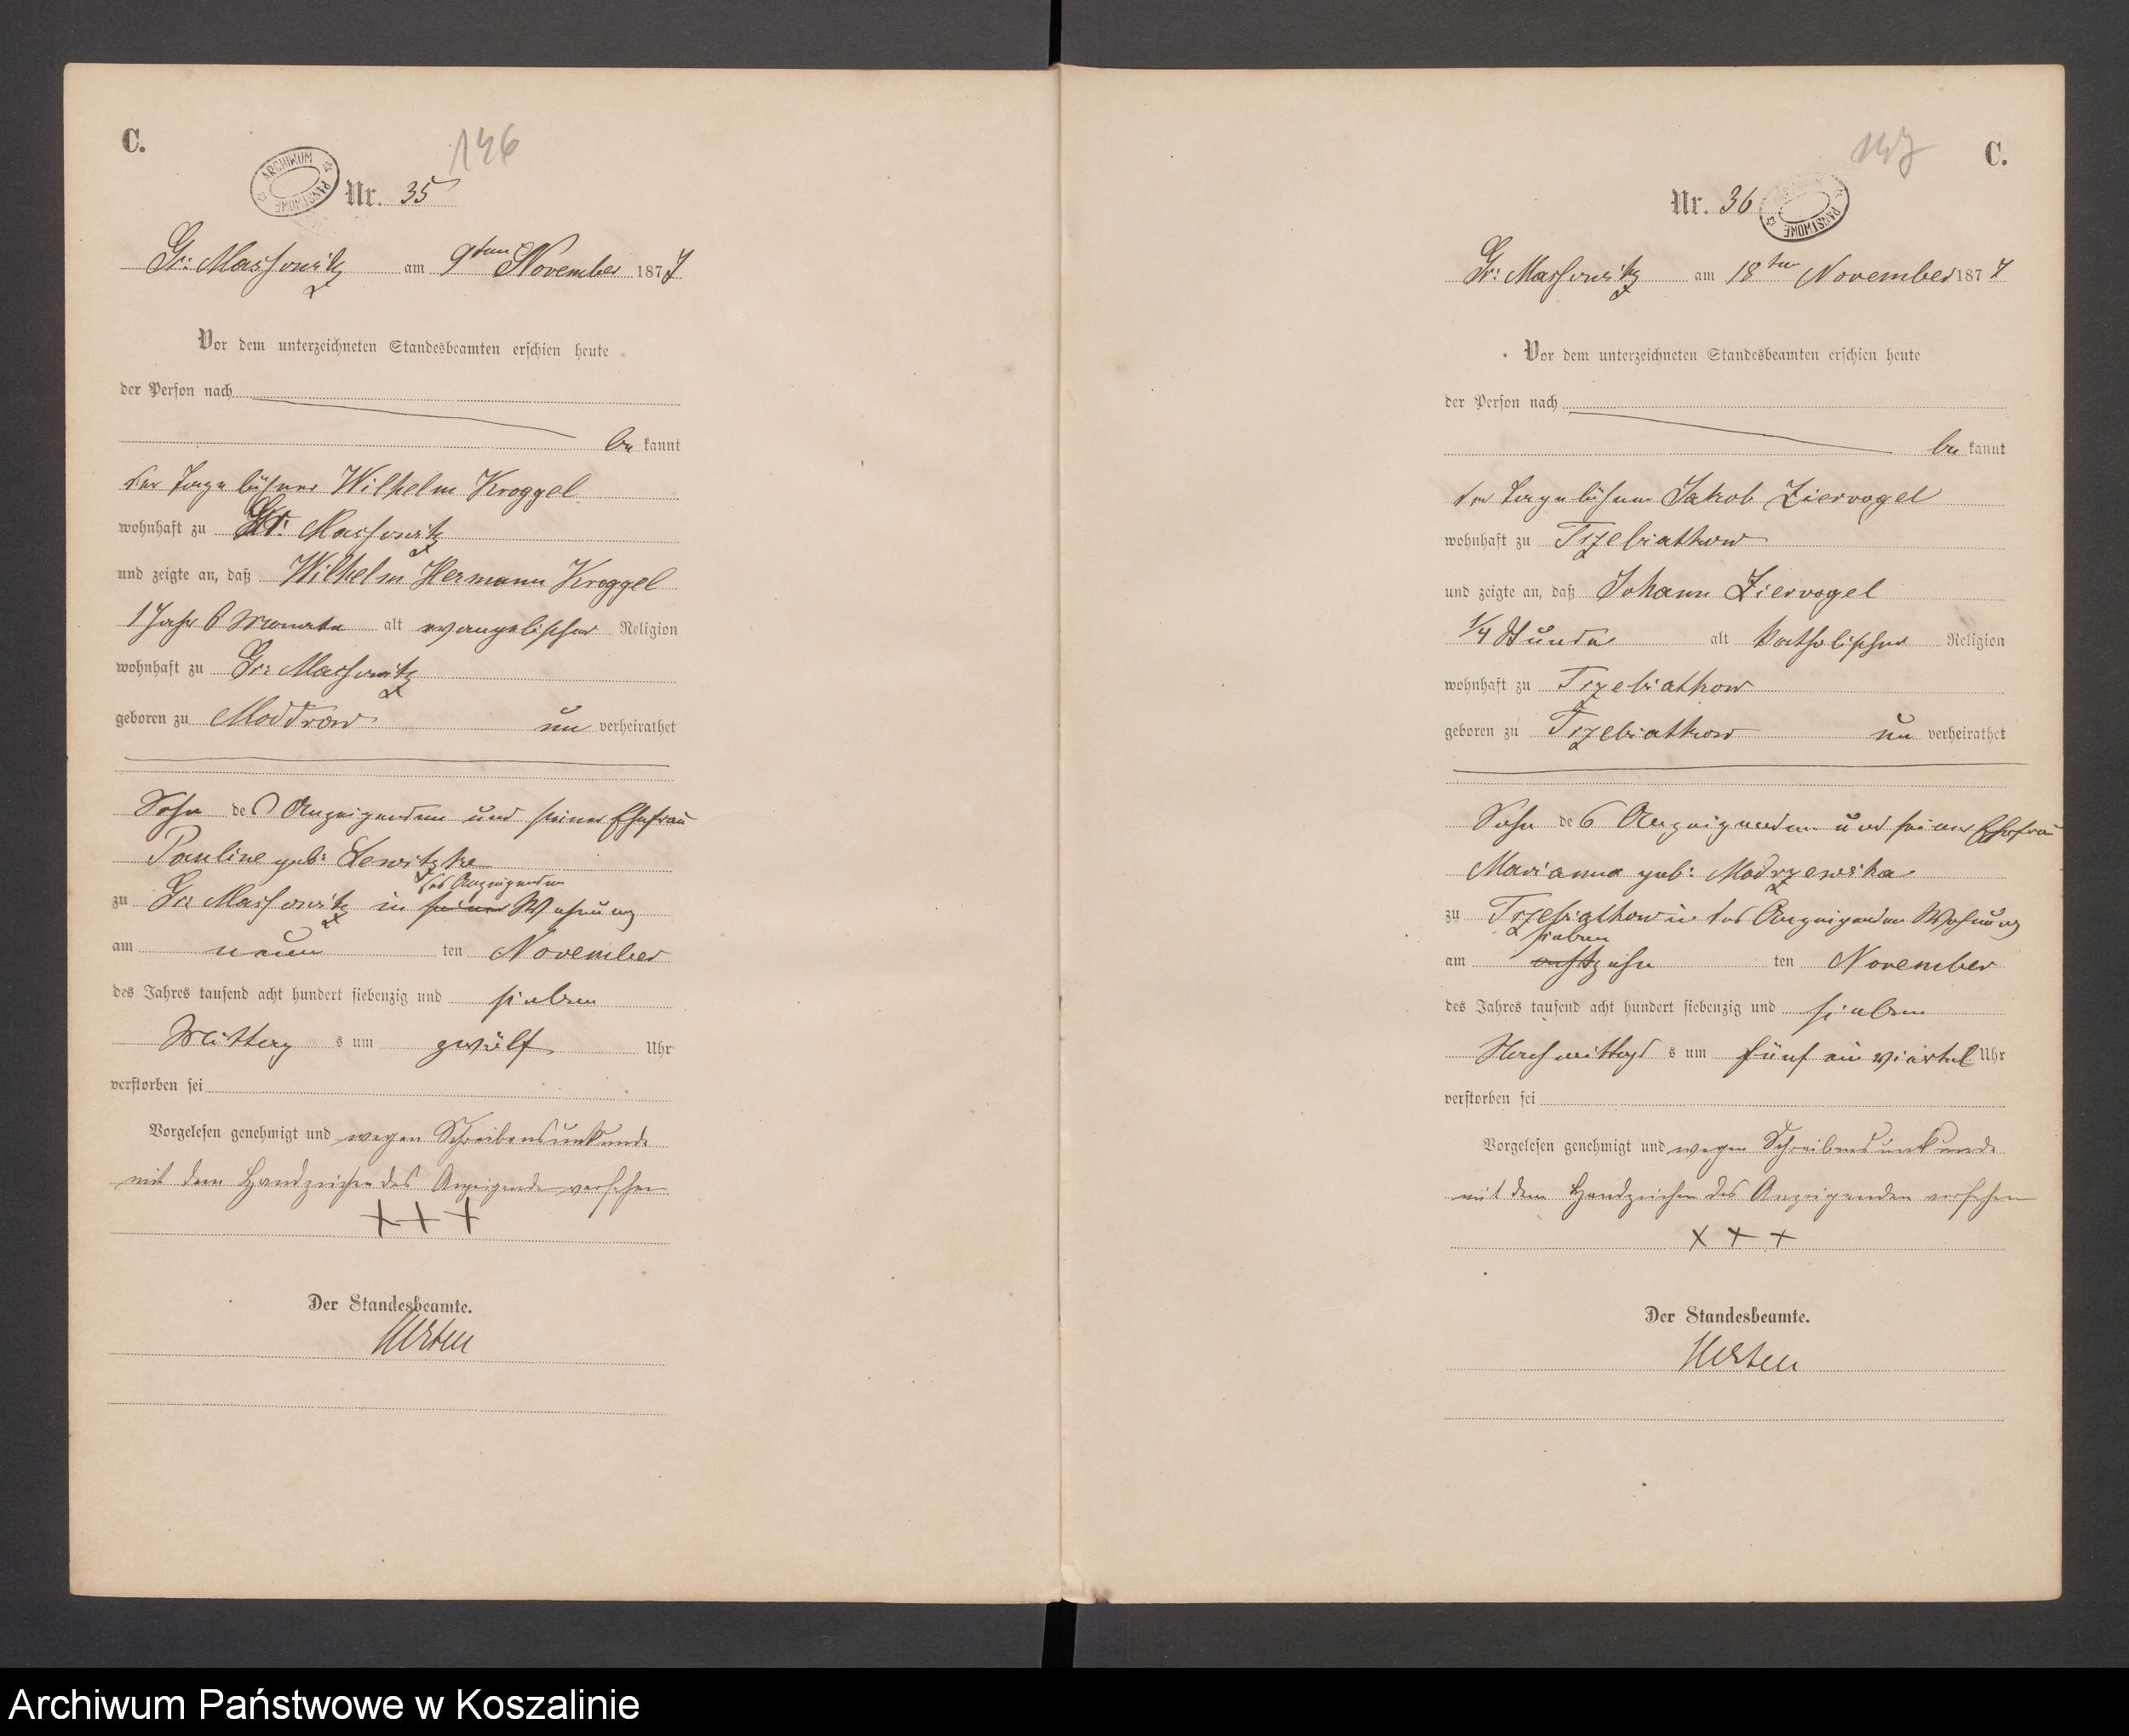 C.
146
ARCHIWUM PAŃSTWOWE
Nr. 35
Gr: Massowitz am 9ten November 1877
Vor dem unterzeichneten Standesbeamten erschien heute
der Person nach
be kannt
der Tagelöhner Wilhelm Kroggel
wohnhaft zu Gr. Massowitz
und zeigte an, daß Wilhelm Hermann Kroggel
1 Jahr 6 Monate alt evangelischer Religion
wohnhaft zu Gr: Massowitz
geboren zu Moddrow un verheirathet
Sohn des Anzeigenden und seiner Ehefrau
Pauline geb: Lewitzke
des Anzeigenden
zu Gr: Massowitz in seiner Wohnung
am neun ten November
des Jahres tausend acht hundert siebenzig und sieben
Mittag s um zwölf Uhr
verstorben sei
Vorgelesen genehmigt und wegen Schreibensunkunde
mit dem Handzeichen des Anzeigenden versehen
+++
Der Standesbeamte.
C.
147
Nr. 36
PAŃSTWOWE
Gr: Massowitz am 18ten November 1877
Vor dem unterzeichneten Standesbeamten erschien heute
der Person nach
be kannt
der Tagelöhner Jakob Ziervogel
wohnhaft zu Trzebiatkow
und zeigte an, daß Johann Ziervogel
1/4 Stunde alt katholischer Religion
wohnhaft zu Trzebiatkow
geboren zu Trzebiatkow un verheirathet
Sohn des Anzeigenden und seiner Ehefrau
Marianna geb: Modrzewska
zu Trzebiatkow in des Anzeigenden Wohnung
sieben
am achtzehn ten November
des Jahres tausend acht hundert siebenzig und sieben
Nachmittags s um fünf ein viertel Uhr
verstorben sei
Vorgelesen genehmigt und wegen Schreibensunkunde
mit dem Handzeichen des Anzeigenden versehen
+++
Der Standesbeamte.
Archiwum Państwowe w Koszalinie